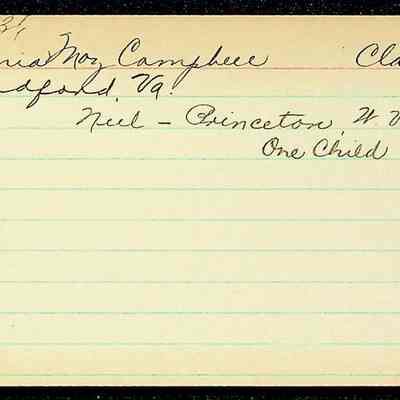 31
nia May Campbell Cla
dford, Va.
Neel - Princeton, W. V
One Child